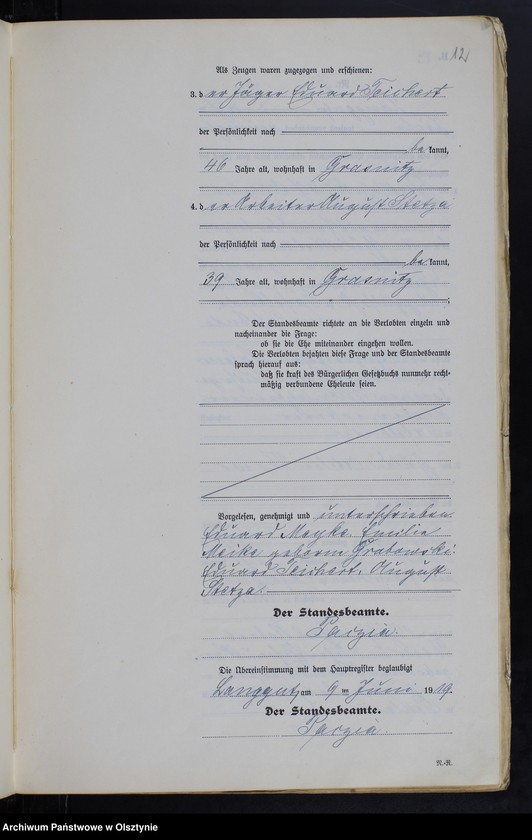 12
Als Zeugen waren zugezogen und erschienen:
3. der Jäger Eduard Teichert
der Persönlichkeit nach
be kannt,
40 Jahre alt, wohnhaft in Grasnitz
4. der Arbeiter August Stetza
der Persönlichkeit nach
be kannt,
39 Jahre alt, wohnhaft in Grasnitz
;
Der Standesbeamte richtete an die Verlobten einzeln und
nacheinander die Frage:
ob sie die Ehe miteinander eingehen wollen.
Die Verlobten bejahten diese Frage und der Standesbeamte
sprach hierauf aus:
daß sie kraft des Bürgerlichen Gesetzbuchs nunmehr recht-
mäßig verbundene Eheleute seien.
Vorgelesen, genehmigt und unterschrieben
Eduard Meyke. Emilie
Meike geborn Grabowski.
Eduard Teichert. August
Stetza.
Der Standesbeamte.
Die Übereinstimmung mit dem Hauptregister beglaubigt
Langgut, am 9 ten Juni 1919.
Der Standesbeamte.
N.-R.
Archiwum Państwowe w Olsztynie